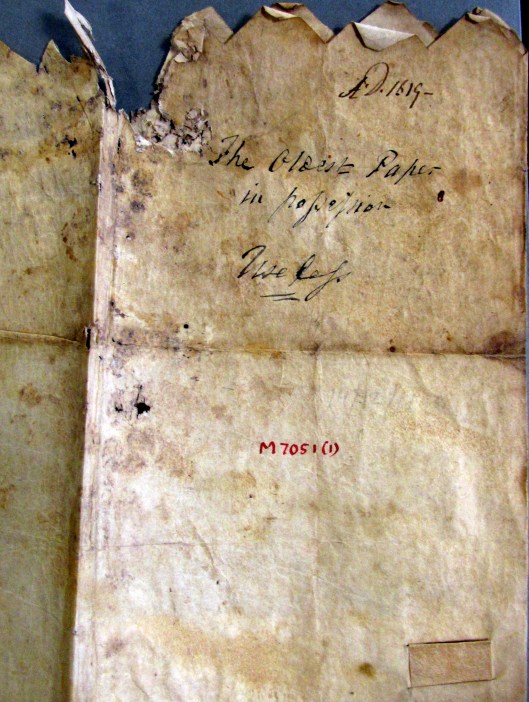 AD. 1619-
The Oldest Paper
in poſseſsion
Useleſs
M7051(1)